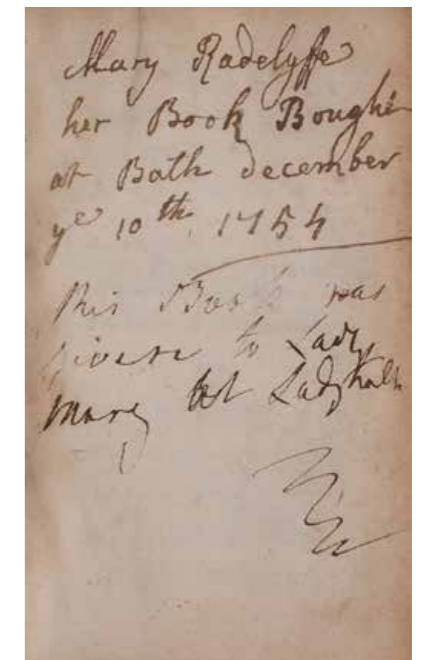 Mary Radclyffe
her Book Bought
at Bath december
ye 10th 1754
This Book was
givene to Lady
mary at Ladyhalk